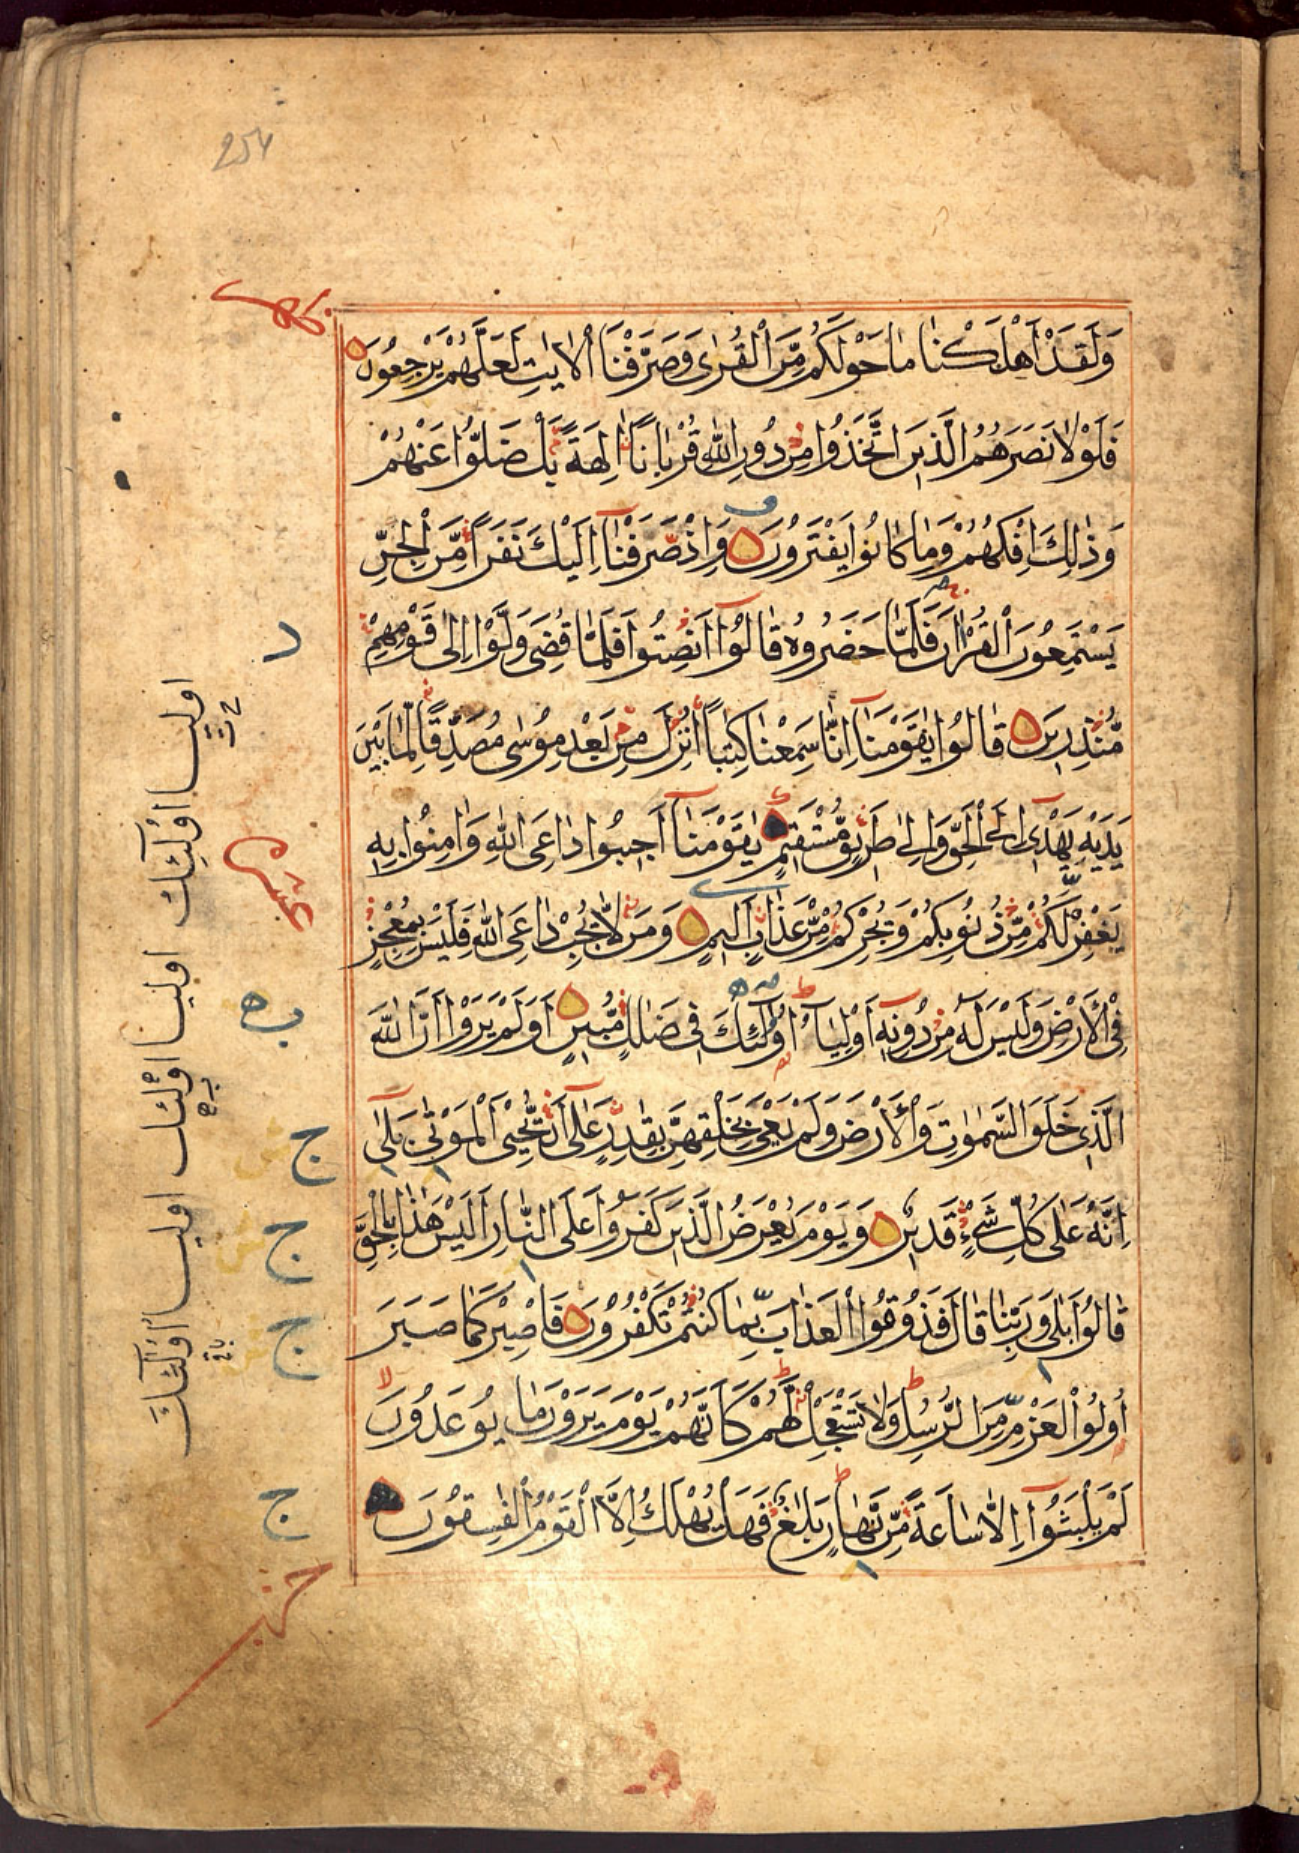 254
وَلَقَدْ اَهْلَكْنَا مَا حَوْلَكُمْ مِّنَ الْقُرٰى وَصَرَّفْنَا الْاٰيٰتِ لَعَلَّهُمْ يَرْجِعُوْنَ
فَلَوْلَا نَصَرَهُمُ الَّذِيْنَ اتَّخَذُوْا مِنْ دُوْنِ اللّٰهِ قُرْبَانًا اٰلِهَةً بَلْ ضَلُّوْا عَنْهُمْ
وَذٰلِكَ اِفْكُهُمْ وَمَا كَانُوْا يَفْتَرُوْنَ وَاِذْ صَرَفْنَآ اِلَيْكَ نَفَرًا مِّنَ الْجِنِّ
يَسْتَمِعُوْنَ الْقُرْاٰنَ فَلَمَّا حَضَرُوْهُ قَالُوْٓا اَنْصِتُوْا فَلَمَّا قُضِيَ وَلَّوْا اِلٰى قَوْمِهِمْ
مُّنْذِرِيْنَ قَالُوْا يٰقَوْمَنَآ اِنَّا سَمِعْنَا كِتٰبًا اُنْزِلَ مِنْ بَعْدِ مُوْسٰى مُصَدِّقًا لِّمَا بَيْنَ
يَدَيْهِ يَهْدِيْٓ اِلَى الْحَقِّ وَاِلٰى طَرِيْقٍ مُّسْتَقِيْمٍ يٰقَوْمَنَآ اَجِيْبُوْا دَاعِيَ اللّٰهِ وَاٰمِنُوْا بِهٖ
يَغْفِرْ لَكُمْ مِّنْ ذُنُوْبِكُمْ وَيُجِرْكُمْ مِّنْ عَذَابٍ اَلِيْمٍ وَمَنْ لَّا يُجِبْ دَاعِيَ اللّٰهِ فَلَيْسَ بِمُعْجِزٍ
فِى الْاَرْضِ وَلَيْسَ لَهٗ مِنْ دُوْنِهٖٓ اَوْلِيَآءُ اُولٰٓئِكَ فِيْ ضَلٰلٍ مُّبِيْنٍ اَوَلَمْ يَرَوْا اَنَّ اللّٰهَ
الَّذِيْ خَلَقَ السَّمٰوٰتِ وَالْاَرْضَ وَلَمْ يَعْيَ بِخَلْقِهِنَّ بِقٰدِرٍ عَلٰٓى اَنْ يُّحْيِيَ الْمَوْتٰى بَلٰٓى
اِنَّهٗ عَلٰى كُلِّ شَيْءٍ قَدِيْرٌ وَيَوْمَ يُعْرَضُ الَّذِيْنَ كَفَرُوْا عَلَى النَّارِ اَلَيْسَ هٰذَا بِالْحَقِّ
قَالُوْا بَلٰى وَرَبِّنَا قَالَ فَذُوْقُوا الْعَذَابَ بِمَا كُنْتُمْ تَكْفُرُوْنَ فَاصْبِرْ كَمَا صَبَرَ
اُولُوا الْعَزْمِ مِنَ الرُّسُلِ وَلَا تَسْتَعْجِلْ لَّهُمْ كَاَنَّهُمْ يَوْمَ يَرَوْنَ مَا يُوْعَدُوْنَ
لَمْ يَلْبَثُوْٓا اِلَّا سَاعَةً مِّنْ نَّهَارٍ بَلٰغٌ فَهَلْ يُهْلَكُ اِلَّا الْقَوْمُ الْفٰسِقُوْنَ
ج
ج
ج
ج
اوليا اولٓئك اوليا اولئك اوليا اُولٰٓئكَ